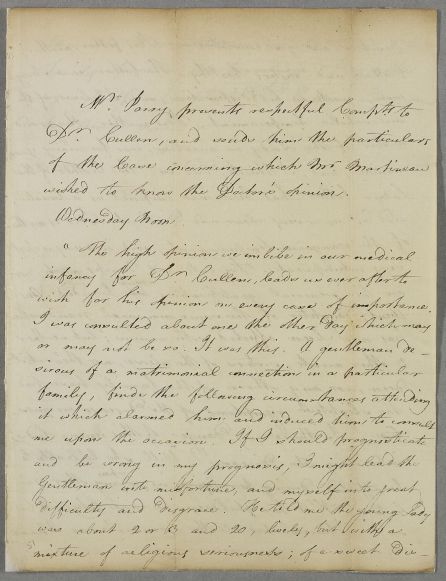 Mr. Parry presents respectful Compts to
Dr. Cullen, and sends him the particulars
of the Case concerning which Mr Martineau
wished to know the Doctor's opinion.
Wednesday Noon
"The high opinion we imbibe in our medical
infancy for Dr Cullen, leads us ever after to
wish for his opinion in every case of importance.
I was consulted about one the other day which may
or may not be so. It was this. A gentleman de-
sirous of a matrimonial connection in a particular
family, finds the following circumstances attending
it which alarmed him and induced him to consult
me upon the occasion. If I should prognosticate
and be wrong in my prognosis, I might lead the
Gentleman into misfortune, and myself into great
difficulty and disgrace. He told me the young Lady
was about 2 or 3 and 20, lively, but with a
mixture of religious seriousness; of a sweet dis-